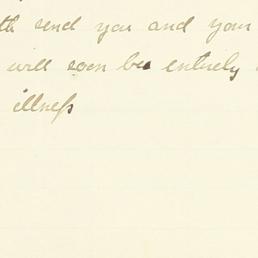 th send you and your
will soon be entirely
illness